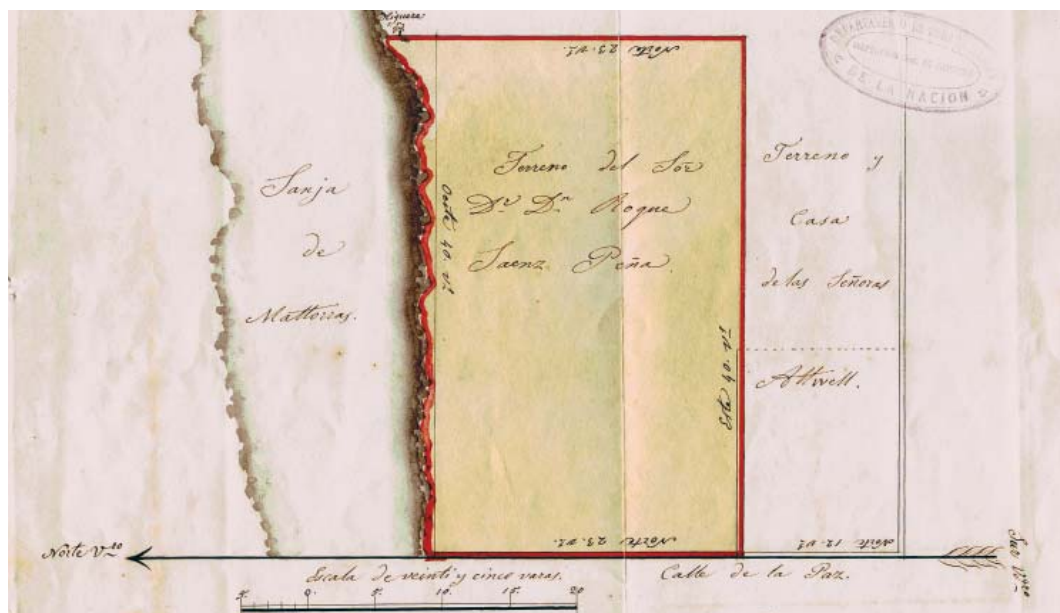 Higuera
Norte 23. vs.
DE LA NACION
Sanja
de
Mattorras.
Oeste 40. vs.
Terreno del Sor.
Dr. Dn. Roque
Saenz Peña.
Este 40. vs.
Terreno y
Casa
de las Señoras
Attwell.
Norte 23. vs.
Norte 12. vs.
Norte Vero
Sur Vero
Escala de veinti y cinco varas.
Calle de la Paz.
5. 0. 5. 10. 15. 20